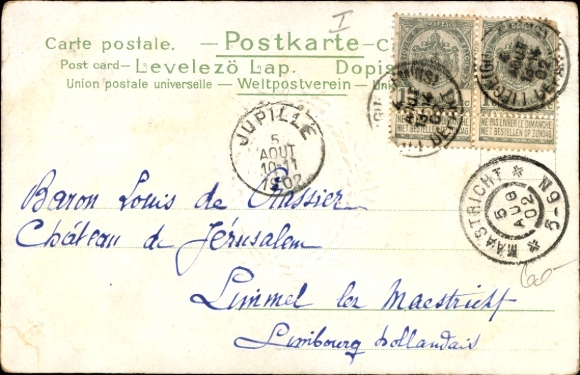 I
Carte postale. — Postkarte — C
Post card — Levelező Lap. Dopis
Union postale universelle — Weltpostverein — Uni
NE PAS LIVRER LE DIMANCHE
NIET BESTELLEN OP ZONDAG
NE PAS LIVRER LE DIMANCHE
NIET BESTELLEN OP ZONDAG
JUPILLE
5
AOUT
10-11
1902
MAASTRICHT
5 AUG 02
N 9-5
Baron Louis de
Château de Jérusalem
Limmel lez Maestricht
Limbourg hollandais
60-